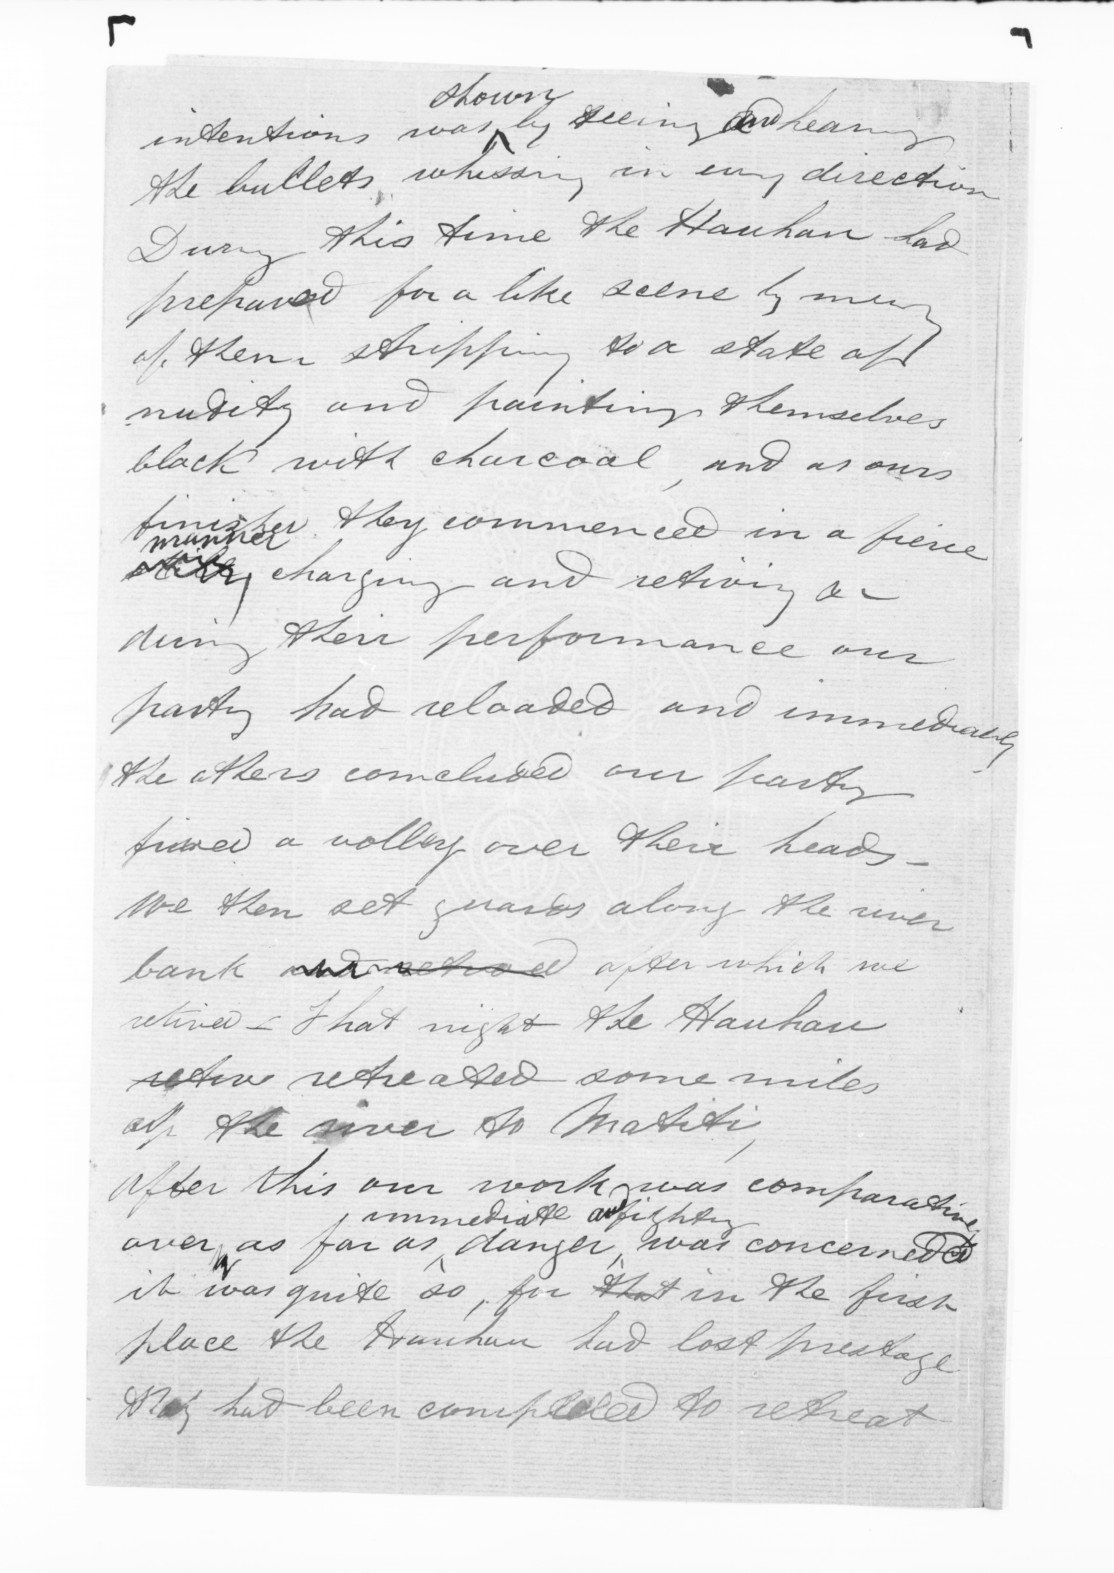 intentions was shown by seeing and hearing
the bullets whissing in every direction
During this time the Hauhau had
prepared for a like scene by many
of them stripping to a state of
nudity and painting themselves
black with charcoal, and as ours
finished they commenced in a fierce
manner charging and retiring &c
during their performance our
party had reloaded and immediately
the others concluded our party
fired a volley over their heads -
We then set guards along the river
bank and retired after which we
retired - That night the Hauhau
retire retreated some miles
up the river to Matiti,
after this our work was comparative
over, as far as immediate danger, and fighting was concerned
it was quite so, for that in the first
place the Hauhau had lost prestage
they had been compelled to retreat